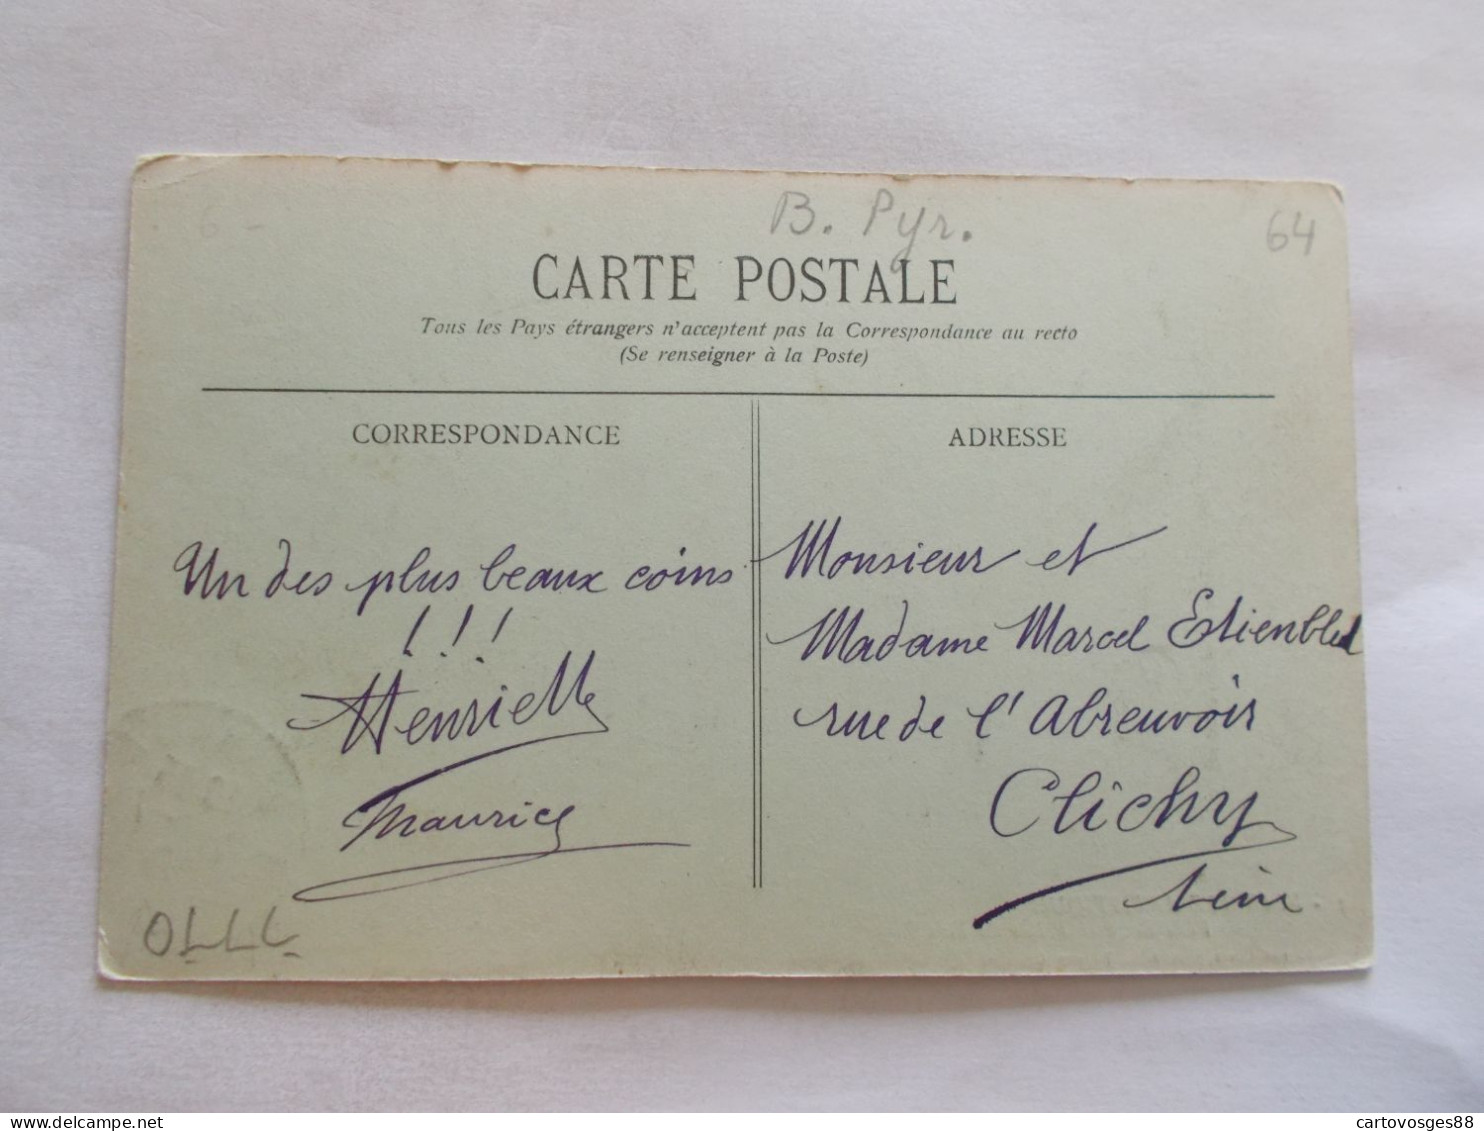 6-
B. Pyr.
64
CARTE POSTALE
Tous les Pays étrangers n'acceptent pas la Correspondance au recto
(Se renseigner à la Poste)
CORRESPONDANCE
Un des plus beaux coins
!!!
Henrielle
Maurice
OLLL
ADRESSE
Monsieur et
Madame Marcel Etienbled
rue de l'Abreuvoir
Clichy
Seine
delcampe.net
cartovosges88